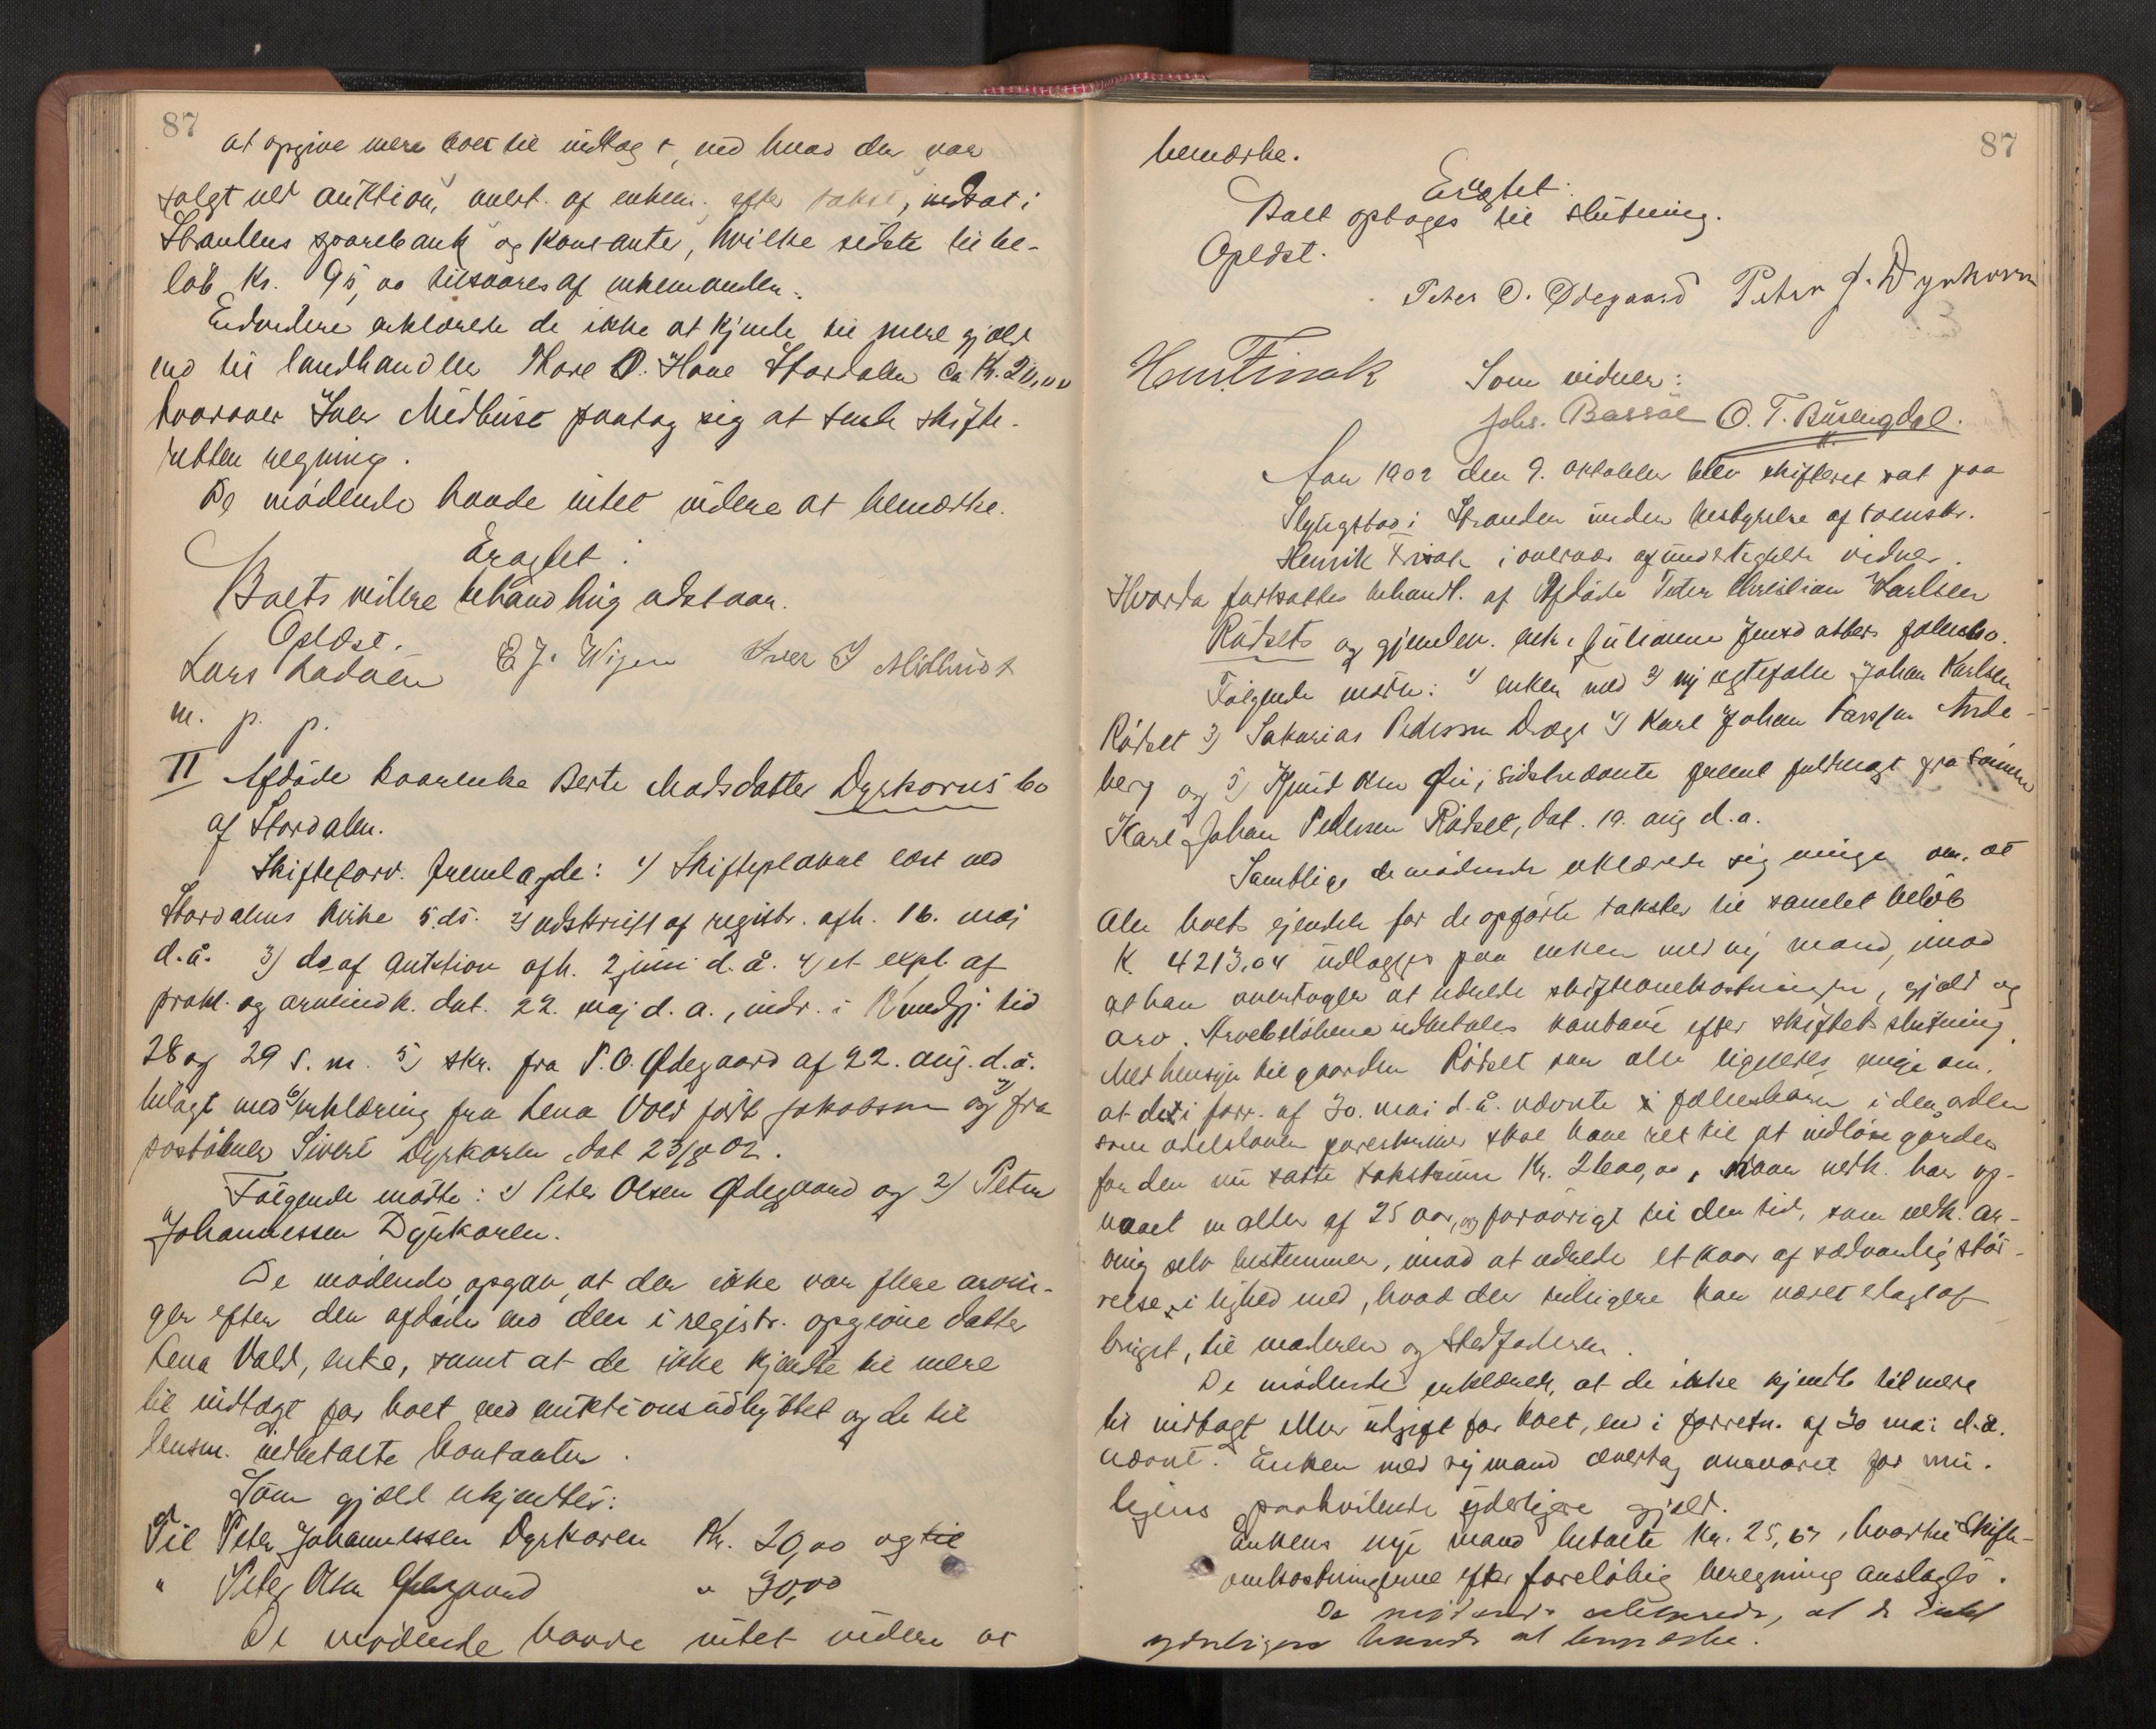 87
at opgive mere boet til indtægt, end hvad der var
solgt ved auktion, overt. af enken efter takst, indsat i
Strandens sparebank og kontanter, hvilke sidste til be-
løb Kr. 95,00 tilsvares af enkemanden.
Endvidere erklærede de ikke at kjende til mere gjæld
end til landhandler Kore O. Hove Stordalen ca Kr. 20,00
hvorover Iver Midhust paatog sig at sende skifte-
retten regning.
De mødende havde intet videre at bemærke.
Eragtet:
Boets videre behandling udstaar.
Oplæst.
Lars Ladøen E J. Wigen Iver I Midhust
m. p. p.
II Afdøde kaarenke Berte Madsdatter Dyrkorns bo
af Stordalen.
Skifteforv. fremlagde: 1) Skifteplakat læst ved
Stordalens kirke 5 ds. 2) udskrift af registr. afh. 16. maj
d.å. 3) do af auktion afh. 2 juni d.å. 4) et expl. af
prokl. og arveindk. dat. 22. maj d.a., indr. i Kundgj. tid
28 og 29 s.m. 5) skr. fra P.O. Ødegaard af 22. aug. d.å.
bilagt med 6) erklæring fra Lena Vold født Jakobsen og 7) fra
postaabner Sivert Dyrkoren, dat 23/8 02.
Følgende mødte: 1) Peter Olsen Ødegaard og 2) Peter
Johannessen Dyrkoren.
De mødende opgav, at der ikke var flere arvin-
ger efter den afdøde end den i registr. opgivne datter
Lena Vold, enke, samt at de ikke kjendte til mere
til indtægt for boet end auktionsudbyttet og de til
lensm. indbetalte kontanter.
Som gjæld erkjendtes:
Til Peter Johannessen Dyrkoren Kr. 20,00 og til
" Peter Olsen Ødegaard " 30,00
De mødende havde intet videre at
87
bemærke.
Eragtet:
Boet optages til slutning.
Oplæst.
Peter O. Ødegaard Peter J. Dyrkorn
Hen Finak Som vidner:
Johs. Bassøe O. T. Busengdal.
Aar 1902 den 9. oktober blev skifteret sat paa
Slyngstad i Stranden under bestyrelse af
Henrik i overvær af undertegnede vidner.
Hvorda fortsattes behandl. af Afdøde Peter Christian Karlsen
Rødsets og gjenlev. enke Julianne Jensdatters fællesbo.
Følgende mødte: 1) enken med 2) ny ægtefælle Johan Karlsen
Rødset 3) Sakarias Pedersen Drage 4) Karl Johan Larssen
berg og 5) Knut Olsen Øie; sidstnævnte fuldmagt fra sønnen
Karl Johan Pedersen Rødset, dat. 19. aug d.a.
Samtlige de mødende erklærede sig enige om, at
alle boets eiendele for de opførte takster til samlet beløb
K. 4213,04 udlægges paa enken med ny mand, imod
at han overtager at udrede skifteomkostninger, gjæld og
arv. Arvebeløbene udbetales kontant efter skiftets slutning.
Med hensyn til gaarden Rødset var alle ligeledes enige om,
at det i forr. af 30. mai d.å. nævnte fællesbarn i den orden
som odelsloven foreskriver skal have ret til at indløse gaarden
for den nu satte takstsum Kr. 2600,00, naar vedk. har op-
naaet en alder af 25 aar, og forøvrigt til den tid, som vedk. ar-
ving selv bestemmer, imod at udrede et kaar af sædvanlig stør-
relse, i lighed med, hvad der tidligere har været udlagt af
bruget, til moderen og Stedfaderen.
De mødende erklærede, at de ikke kjendte til mere
til indtægt eller udgift for boet, end i forretn. af 30 mai d.a.
nævnt. Enken med ny mand overtog ansvaret for mu-
ligens paahvilende yderligere gjæld.
Enkens nye mand betalte Kr. 25,67, hvortil Skifte-
omkostningerne efter foreløbig beregning ansloges.
De mødende erklærede, at de intet
yderligere havde at bemærke.